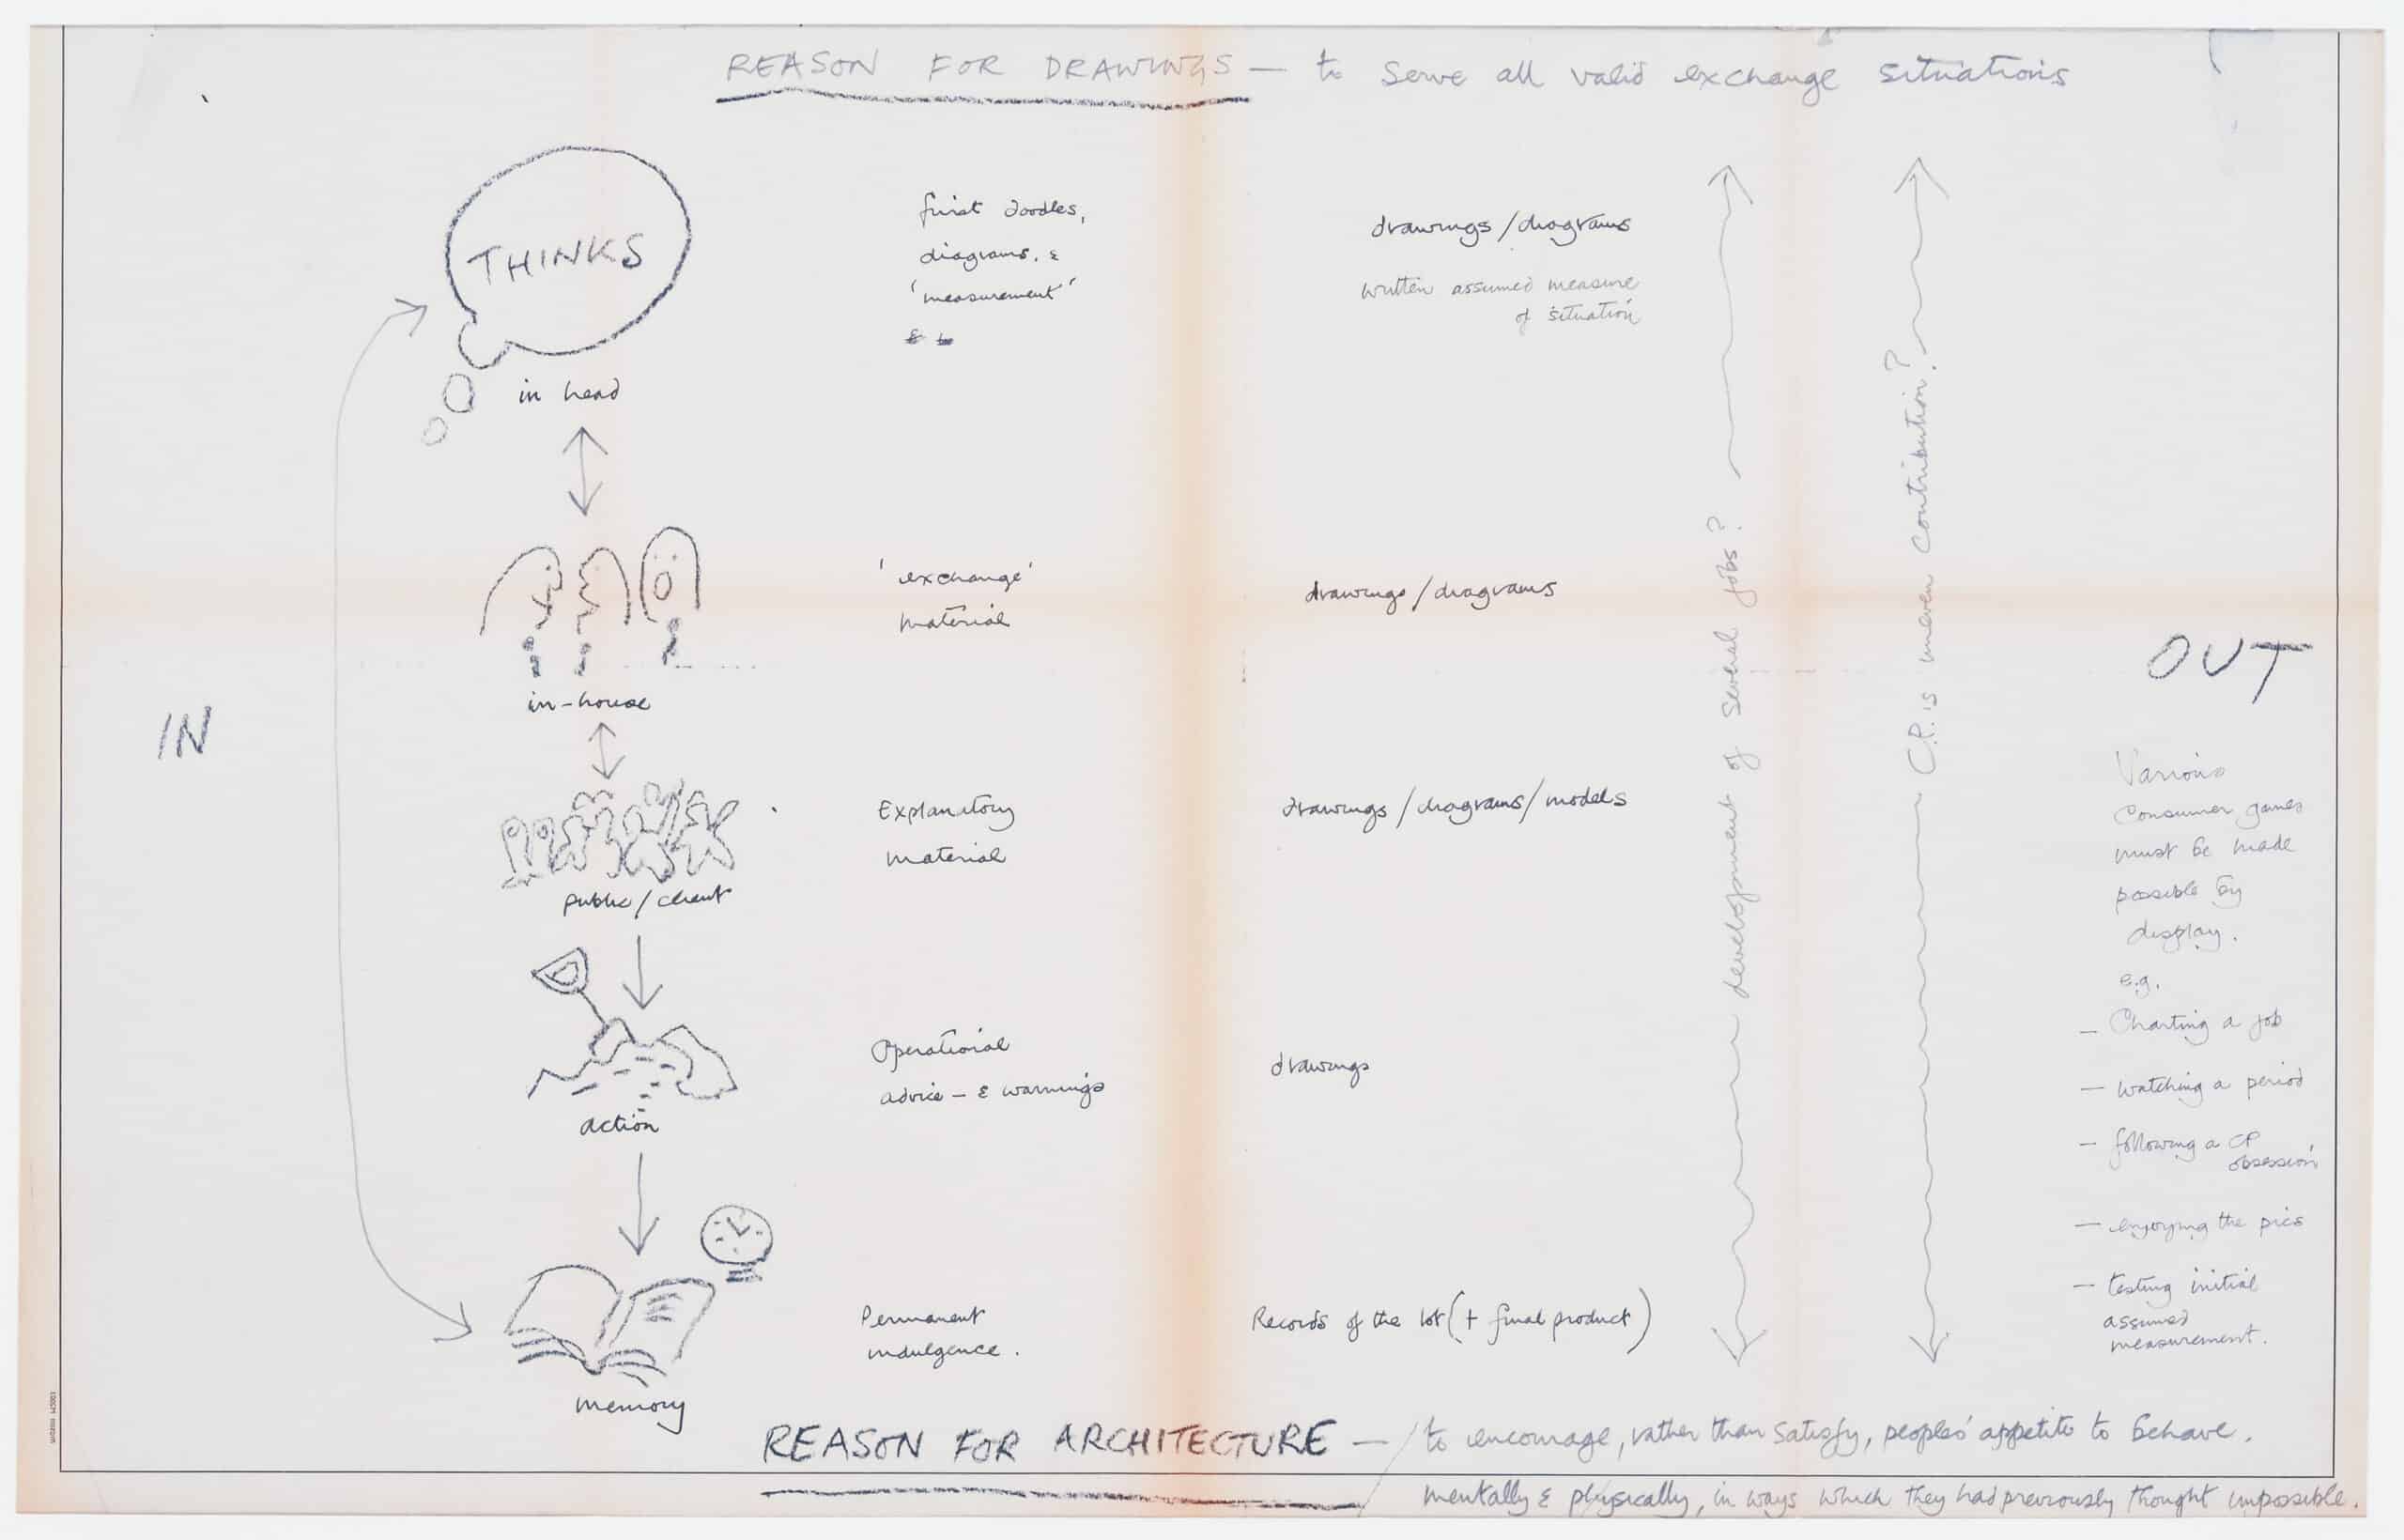 REASON FOR DRAWINGS — to serve all valid exchange situations
THINKS
in head
first doodles,
diagrams, &
'measurement'
drawings/diagrams
written assumed measure
of situation
in-house
'exchange'
material
drawings/diagrams
public/client
Explanatory
material
drawings/diagrams/models
action
Operational
advice – & warnings
drawings
memory
Permanent
indulgence.
Records of the lot (+ final product)
IN
development of several jobs?
C.P. is uneven contribution?
OUT
Various
Consumer games
must be made
possible by
display.
e.g.
– Charting a job
– watching a period
– following a CP
obsession
– enjoying the pics
– testing initial
assumed
measurement.
REASON FOR ARCHITECTURE — to encourage, rather than satisfy, peoples' appetite to behave.
mentally & physically, in ways which they had previously thought impossible.